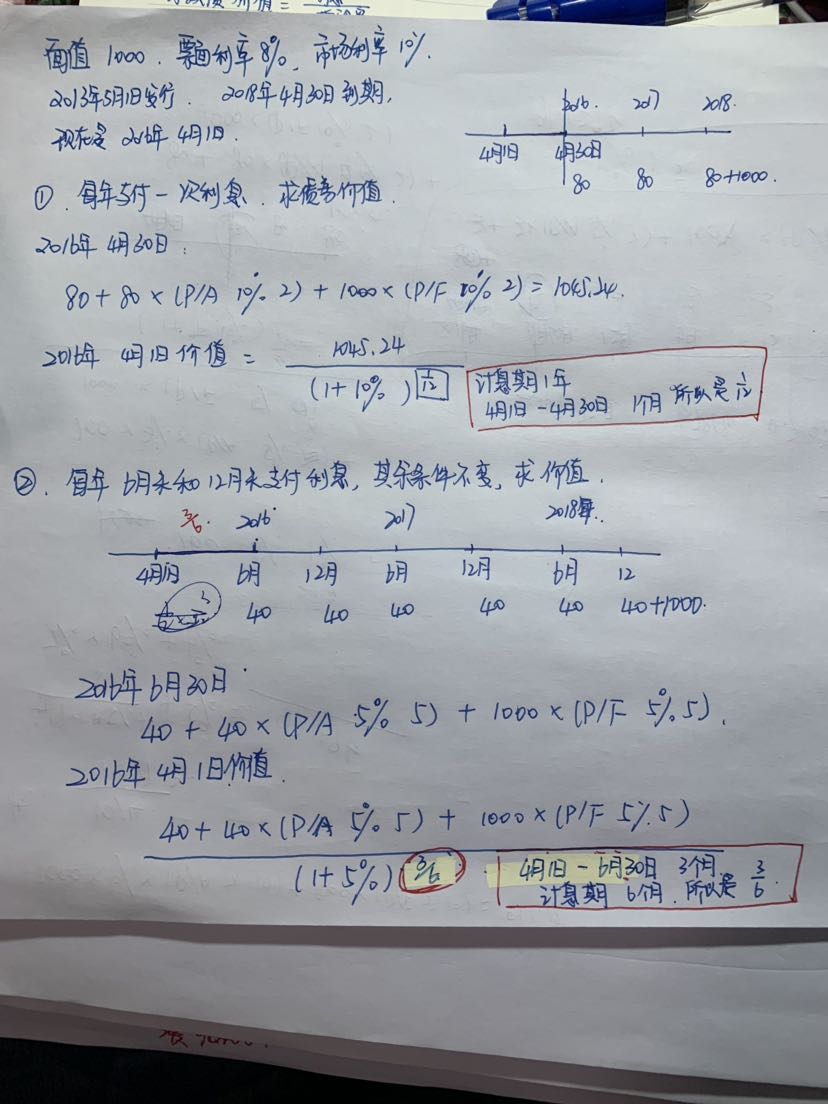 面值 1000. 票面利率 8%. 市场利率 10%.
2013年5月1日发行. 2018年4月30日到期.
现在是 2016年 4月1日.
2016. 2017 2018.
4月1日 4月30日
80 80 80+1000.
①. 每年支付一次利息. 求债券价值.
2016年 4月30日:
80 + 80 × (P/A 10% 2) + 1000 × (P/F 10% 2) = 1045.24.
2016年 4月1日价值 = 1045.24
(1+10%) 1/12
计息期1年
4月1日-4月30日 1个月 所以是 1/12
②. 每年 6月末和12月末支付利息, 其余条件不变, 求价值.
3/6. 2016 2017 2018年.
4月1日 6月 12月 6月 12月 6月 12
40 40 40 40 40 40+1000.
2016年 6月30日
40 + 40 × (P/A 5% 5) + 1000 × (P/F 5% 5).
2016年 4月1日价值.
40 + 40 × (P/A 5% 5) + 1000 × (P/F 5% 5)
(1+5%) 3/6
4月1日-6月30日 3个月.
计息期 6个月. 所以是 3/6.